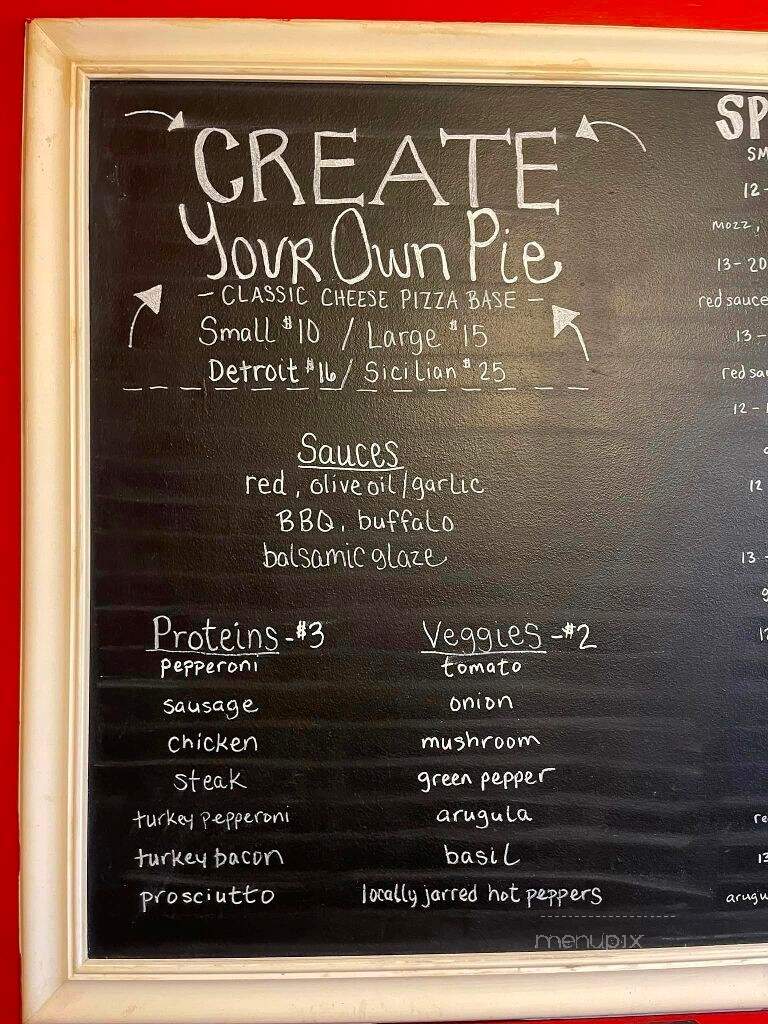 CREATE
Your Own Pie
- CLASSIC CHEESE PIZZA BASE -
Small $10 / Large $15
Detroit $16 / Sicilian $25
Sauces
red, olive oil/garlic
BBQ, buffalo
balsamic glaze
Proteins - $3
pepperoni
sausage
chicken
steak
turkey pepperoni
turkey bacon
prosciutto
Veggies - $2
tomato
onion
mushroom
green pepper
arugula
basil
locally jarred hot peppers
SP
SM
12 -
mozz,
13 - 20
red sauce
13 -
red sau
12 - 1
12
13 -
g
12
re
13
arugu
menupix